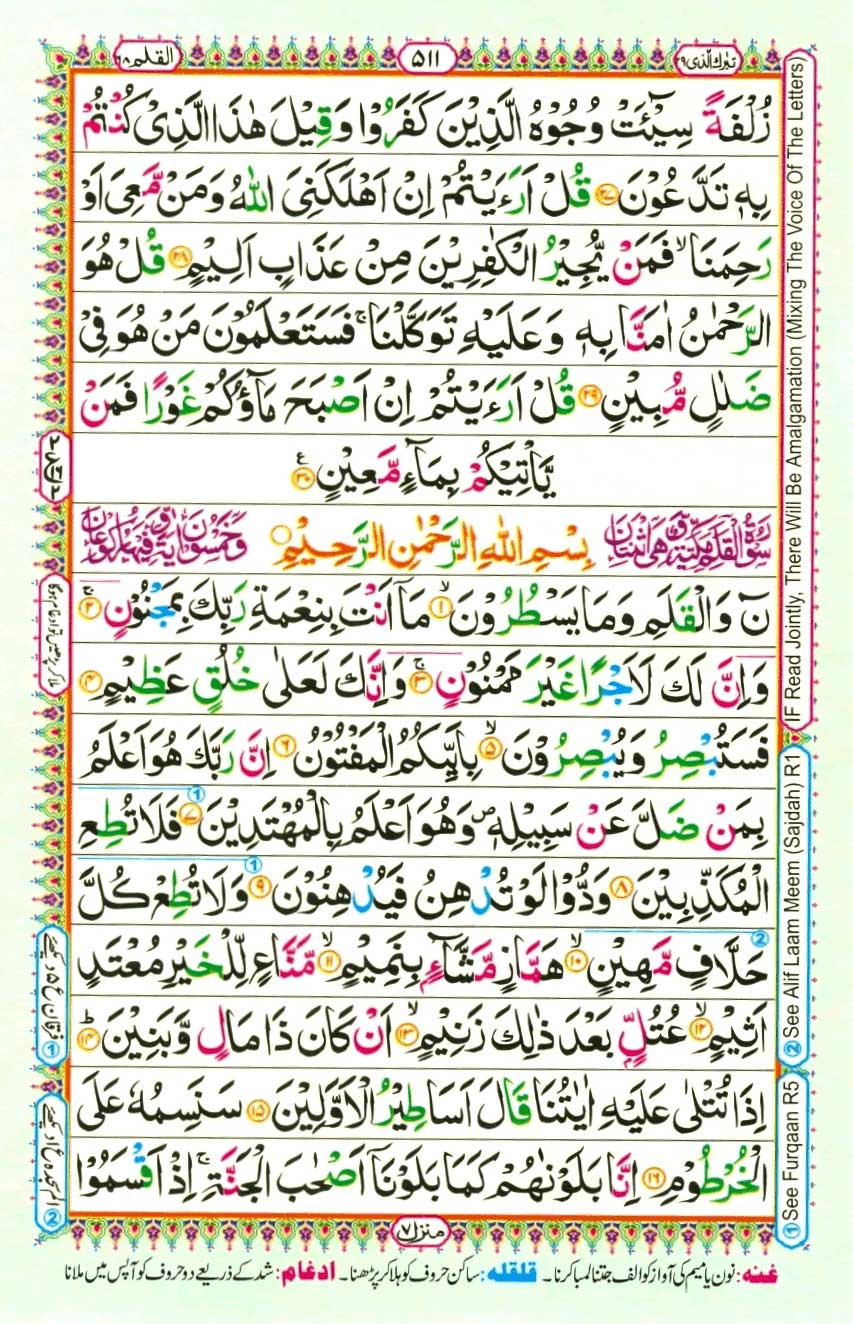 تبٰرك الذى ٢٩
٥١١
القلم ٦٨
زُلْفَةً سِيْٓـَٔتْ وُجُوْهُ الَّذِيْنَ كَفَرُوْا وَقِيْلَ هٰذَا الَّذِىْ كُنْتُمْ
بِهٖ تَدَّعُوْنَ ﴿٢٧﴾ قُلْ اَرَءَيْتُمْ اِنْ اَهْلَكَنِىَ اللّٰهُ وَمَنْ مَّعِىَ اَوْ
رَحِمَنَا ۙ فَمَنْ يُّجِيْرُ الْكٰفِرِيْنَ مِنْ عَذَابٍ اَلِيْمٍ ﴿٢٨﴾ قُلْ هُوَ
الرَّحْمٰنُ اٰمَنَّا بِهٖ وَعَلَيْهِ تَوَكَّلْنَا ۚ فَسَتَعْلَمُوْنَ مَنْ هُوَ فِىْ
ضَلٰلٍ مُّبِيْنٍ ﴿٢٩﴾ قُلْ اَرَءَيْتُمْ اِنْ اَصْبَحَ مَآؤُكُمْ غَوْرًا فَمَنْ
يَّاْتِيْكُمْ بِمَآءٍ مَّعِيْنٍ ﴿٣٠﴾ ع
سُوْرَةُ الْقَلَمِ مَكِّيَّةٌ وَّهِىَ اثْنَتَانِ بِسْمِ اللّٰهِ الرَّحْمٰنِ الرَّحِيْمِ وَخَمْسُوْنَ اٰيَةً وَّفِيْهَا رُكُوْعَانِ
نٓ وَالْقَلَمِ وَمَا يَسْطُرُوْنَ ۙ ﴿١﴾ مَآ اَنْتَ بِنِعْمَةِ رَبِّكَ بِمَجْنُوْنٍ ۚ ﴿٢﴾
وَاِنَّ لَكَ لَاَجْرًا غَيْرَ مَمْنُوْنٍ ۚ ﴿٣﴾ وَاِنَّكَ لَعَلٰى خُلُقٍ عَظِيْمٍ ﴿٤﴾
فَسَتُبْصِرُ وَيُبْصِرُوْنَ ۙ ﴿٥﴾ بِاَيِّىكُمُ الْمَفْتُوْنُ ﴿٦﴾ اِنَّ رَبَّكَ هُوَ اَعْلَمُ
بِمَنْ ضَلَّ عَنْ سَبِيْلِهٖ ۖ وَهُوَ اَعْلَمُ بِالْمُهْتَدِيْنَ ﴿٧﴾ ① فَلَا تُطِعِ
الْمُكَذِّبِيْنَ ﴿٨﴾ وَدُّوْا لَوْ تُدْهِنُ فَيُدْهِنُوْنَ ﴿٩﴾ ① وَلَا تُطِعْ كُلَّ
حَلَّافٍ مَّهِيْنٍ ۙ ﴿١٠﴾ ② هَمَّازٍ مَّشَّآءٍۭ بِنَمِيْمٍ ۙ ﴿١١﴾ مَّنَّاعٍ لِّلْخَيْرِ مُعْتَدٍ
اَثِيْمٍ ۙ ﴿١٢﴾ عُتُلٍّۭ بَعْدَ ذٰلِكَ زَنِيْمٍ ۙ ﴿١٣﴾ اَنْ كَانَ ذَا مَالٍ وَّبَنِيْنَ ؕ ﴿١٤﴾
اِذَا تُتْلٰى عَلَيْهِ اٰيٰتُنَا قَالَ اَسَاطِيْرُ الْاَوَّلِيْنَ ﴿١٥﴾ سَنَسِمُهٗ عَلَى
الْخُرْطُوْمِ ﴿١٦﴾ اِنَّا بَلَوْنٰهُمْ كَمَا بَلَوْنَآ اَصْحٰبَ الْجَنَّةِ ۚ اِذْ اَقْسَمُوْا
منزل ٧
غنه: نون یا میم کی آواز کو الف جتنا لمبا کرنا۔ قلقله: ساکن حروف کو ہلا کر پڑھنا۔ ادغام: شد کے ذریعے دو حروف کو آپس میں ملانا
IF Read Jointly, There Will Be Amalgamation (Mixing The Voice Of The Letters)
② See Alif Laam Meem (Sajdah) R1
① See Furqaan R5
ملا کر پڑھیں تو ادغام ہوگا
① فرقان ع ۵ دیکھئے
② الم سجدہ ع ۱ دیکھئے